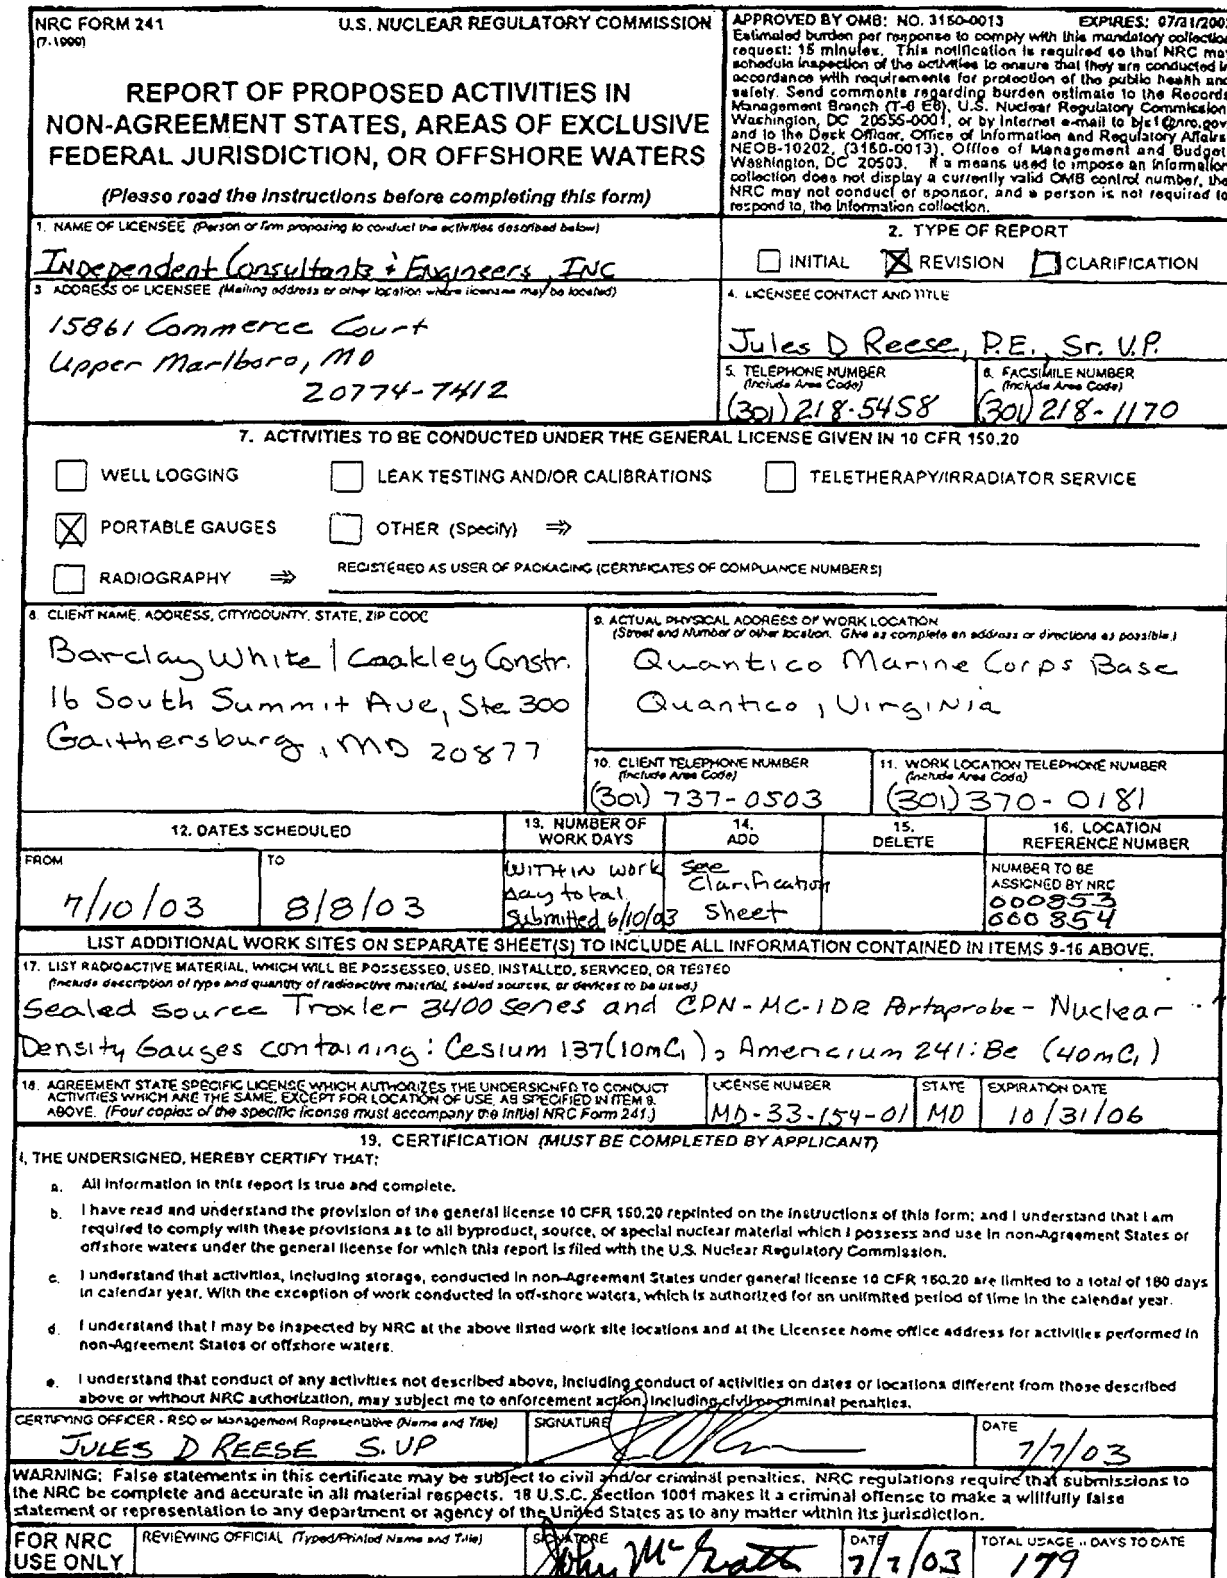 NRC FORM 241
(7-1999)
U.S. NUCLEAR REGULATORY COMMISSION
REPORT OF PROPOSED ACTIVITIES IN
NON-AGREEMENT STATES, AREAS OF EXCLUSIVE
FEDERAL JURISDICTION, OR OFFSHORE WATERS
(Please read the instructions before completing this form)
APPROVED BY OMB: NO. 3150-0013 EXPIRES: 07/31/200
Estimated burden per response to comply with this mandatory collection
request: 15 minutes. This notification is required so that NRC may
schedule inspection of the activities to ensure that they are conducted in
accordance with requirements for protection of the public health and
safety. Send comments regarding burden estimate to the Records
Management Branch (T-6 E6), U.S. Nuclear Regulatory Commission,
Washington, DC 20555-0001, or by Internet e-mail to bjs1@nrc.gov,
and to the Desk Officer, Office of Information and Regulatory Affairs,
NEOB-10202, (3150-0013), Office of Management and Budget,
Washington, DC 20503. If a means used to impose an information
collection does not display a currently valid OMB control number, the
NRC may not conduct or sponsor, and a person is not required to
respond to, the information collection.
1. NAME OF LICENSEE (Person or firm proposing to conduct the activities described below)
Independent Consultants & Engineers, INC
2. TYPE OF REPORT
INITIAL REVISION CLARIFICATION
3. ADDRESS OF LICENSEE (Mailing address or other location where licensee may be located)
15861 Commerce Court
Upper Marlboro, MD
20774-7412
4. LICENSEE CONTACT AND TITLE
Jules D Reese, P.E., Sr. V.P.
5. TELEPHONE NUMBER
(Include Area Code)
(301) 218-5458
6. FACSIMILE NUMBER
(Include Area Code)
(301) 218-1170
7. ACTIVITIES TO BE CONDUCTED UNDER THE GENERAL LICENSE GIVEN IN 10 CFR 150.20
WELL LOGGING LEAK TESTING AND/OR CALIBRATIONS TELETHERAPY/IRRADIATOR SERVICE
PORTABLE GAUGES OTHER (Specify) ⇒
RADIOGRAPHY ⇒ REGISTERED AS USER OF PACKAGING (CERTIFICATES OF COMPLIANCE NUMBERS)
8. CLIENT NAME, ADDRESS, CITY/COUNTY, STATE, ZIP CODE
Barclay White | Coakley Constr.
16 South Summit Ave, Ste 300
Gaithersburg, MD 20877
9. ACTUAL PHYSICAL ADDRESS OF WORK LOCATION
(Street and Number or other location. Give as complete an address or directions as possible.)
Quantico Marine Corps Base
Quantico, Virginia
10. CLIENT TELEPHONE NUMBER
(Include Area Code)
(301) 737-0503
11. WORK LOCATION TELEPHONE NUMBER
(Include Area Code)
(301) 370-0181
12. DATES SCHEDULED
FROM
7/10/03
TO
8/8/03
13. NUMBER OF
WORK DAYS
WITHIN work
day total
Submitted 6/10/03
14.
ADD
see
Clarification
sheet
15.
DELETE
16. LOCATION
REFERENCE NUMBER
NUMBER TO BE
ASSIGNED BY NRC
000853
000854
LIST ADDITIONAL WORK SITES ON SEPARATE SHEET(S) TO INCLUDE ALL INFORMATION CONTAINED IN ITEMS 9-16 ABOVE.
17. LIST RADIOACTIVE MATERIAL, WHICH WILL BE POSSESSED, USED, INSTALLED, SERVICED, OR TESTED
(Include description of type and quantity of radioactive material, sealed sources, or devices to be used.)
Sealed source Troxler 3400 series and CPN-MC-1DR Portaprobe - Nuclear
Density Gauges containing: Cesium 137(10mCi), Americium 241:Be (40mCi)
18. AGREEMENT STATE SPECIFIC LICENSE WHICH AUTHORIZES THE UNDERSIGNED TO CONDUCT
ACTIVITIES WHICH ARE THE SAME, EXCEPT FOR LOCATION OF USE, AS SPECIFIED IN ITEM 9.
ABOVE. (Four copies of the specific license must accompany the initial NRC Form 241.)
LICENSE NUMBER
MD-33-154-01
STATE
MD
EXPIRATION DATE
10/31/06
19. CERTIFICATION (MUST BE COMPLETED BY APPLICANT)
I, THE UNDERSIGNED, HEREBY CERTIFY THAT:
a. All information in this report is true and complete.
b. I have read and understand the provision of the general license 10 CFR 150.20 reprinted on the instructions of this form; and I understand that I am
required to comply with these provisions as to all byproduct, source, or special nuclear material which I possess and use in non-Agreement States or
offshore waters under the general license for which this report is filed with the U.S. Nuclear Regulatory Commission.
c. I understand that activities, including storage, conducted in non-Agreement States under general license 10 CFR 150.20 are limited to a total of 180 days
in calendar year. With the exception of work conducted in off-shore waters, which is authorized for an unlimited period of time in the calendar year.
d. I understand that I may be inspected by NRC at the above listed work site locations and at the Licensee home office address for activities performed in
non-Agreement States or offshore waters.
e. I understand that conduct of any activities not described above, including conduct of activities on dates or locations different from those described
above or without NRC authorization, may subject me to enforcement action, including civil or criminal penalties.
CERTIFYING OFFICER - RSO or Management Representative (Name and Title)
JULES D REESE S. VP
SIGNATURE
DATE
7/7/03
WARNING: False statements in this certificate may be subject to civil and/or criminal penalties. NRC regulations require that submissions to
the NRC be complete and accurate in all material respects. 18 U.S.C. Section 1001 makes it a criminal offense to make a willfully false
statement or representation to any department or agency of the United States as to any matter within its jurisdiction.
FOR NRC
USE ONLY
REVIEWING OFFICIAL (Typed/Printed Name and Title)
SIGNATURE
John McGrath
DATE
7/7/03
TOTAL USAGE - DAYS TO DATE
179